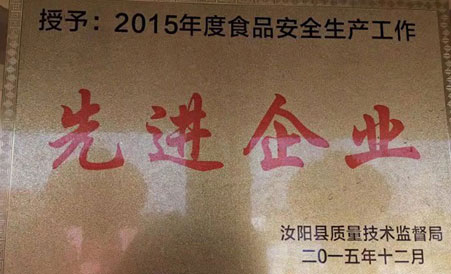 授予：2015年度食品安全生产工作
先进企业
汝阳县质量技术监督局
二0一五年十二月